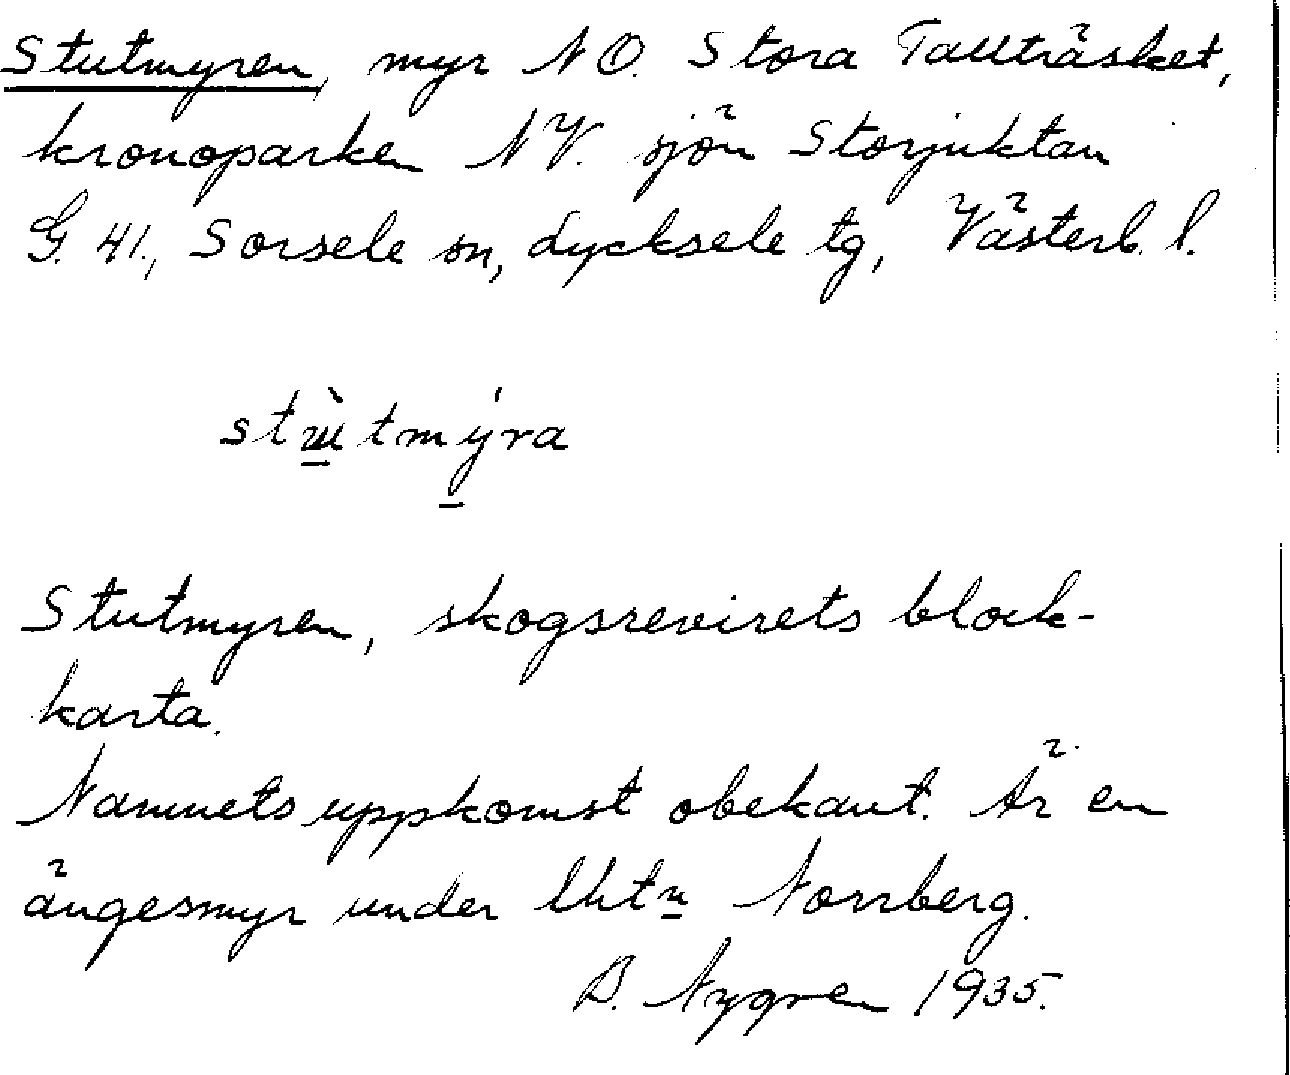 Stutmyren, myr NO. Stora Tallträsket,
kronoparken NV. sjön Storjuktan
G. 41., Sorsele sn, Lycksele tg, Västerb. l.
stɯ̀tmýra
Stutmyren, skogsrevirets block-
karta.
Namnets uppkomst obekant. Är en
ängesmyr under lht:n Norrberg.
B. Nygren 1935.